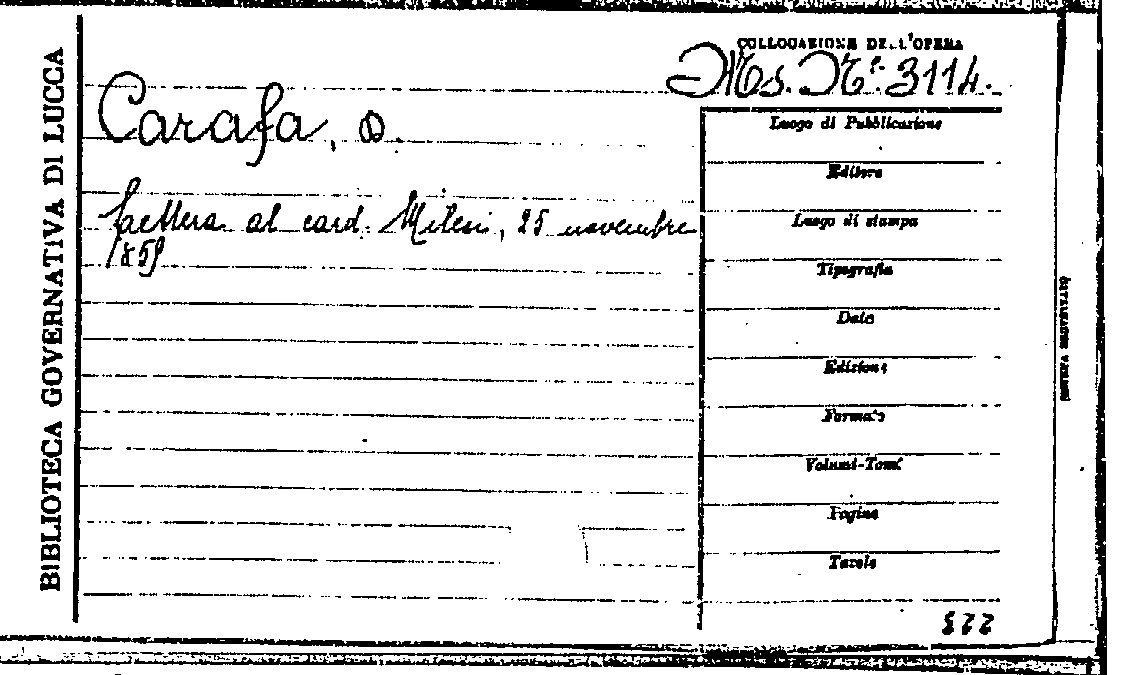 BIBLIOTECA GOVERNATIVA DI LUCCA
COLLOCAZIONE DELL'OPERA
Ms. N.º 3114.
Carafa, D.
Lettera al card. Milesi, 25 novembre
1859
Luogo di Pubblicazione
Editore
Luogo di stampa
Tipografia
Data
Edizione
Formato
Volumi-Tomi
Pagine
Tavole